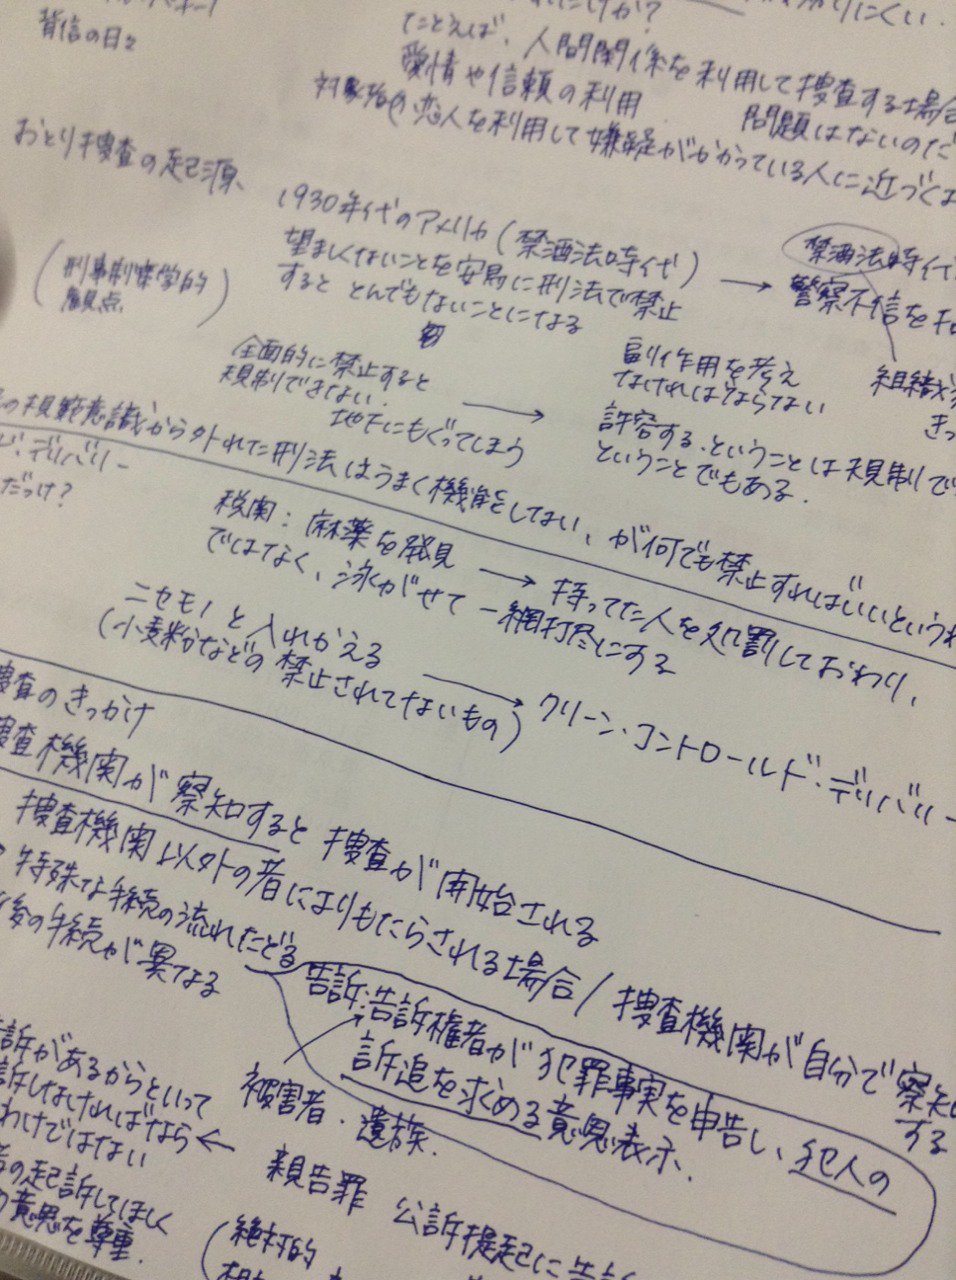 背信の日々
たとえば、人間関係を利用して捜査する場合
愛情や信頼の利用 問題はないのだ
恋人を利用して嫌疑がかかっている人に近づくは
おとり捜査の起源、
1930年代のアメリカ(禁酒法時代)
望ましくないことを安易に刑法で禁止
すると とんでもないことになる
(刑事制策学的
観点)
→ 禁酒法時代
警察不信を
全面的に禁止すると
規制できない。
地下にもぐってしまう
→ 副作用を考え
なければならない
許容する、ということは規制で
ということでもある。
組織
きっ
の規範意識から外れた刑法はうまく機能をしない、が何でも禁止すればいいというわ
ド・デリバリー
だっけ?
税関:麻薬を発見 → 持ってた人を処罰しておわり、
ではなく、泳がせて一網打尽にする
ニセモノと入れかえる
(小麦粉などの禁止されてないもの)
→ クリーン・コントロールド・デリバリー
捜査のきっかけ
捜査機関が察知すると捜査が開始される
捜査機関以外の者によりもたらされる場合/捜査機関が自分で察知
する
特殊な手続の流れたどる
後の手続が異なる
告訴:告訴権者が犯罪事実を申告し、犯人の
訴追を求める意思表示、
被害者・遺族.
訴があるからといって
訴しなければなら
わけではない ←
の起訴してほしく
意思を尊重.
親告罪 公訴提起に告訴
(絶対的